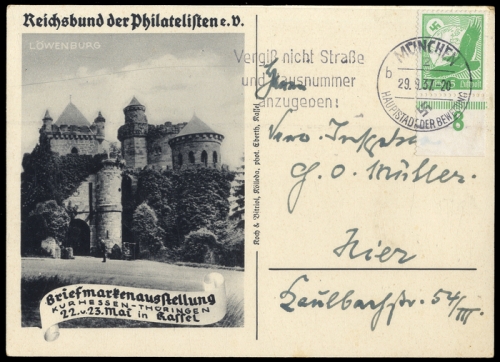 Reichsbund der Philatelisten e.V.
LÖWENBURG
Briefmarkenausstellung
KURHESSEN-THÜRINGEN
22. u. 23. Mai in Kassel
Koch & Bittriol, Kölleda, phot. Eberth, Kassel
Vergiß nicht Straße
und Hausnummer
anzugeben!
MÜNCHEN
b
29.9.37.-20
HAUPTSTADT DER BEWEGUNG
5
8
Herrn
G. O. Müller.
Hier
Kaulbachstr. 54/III.